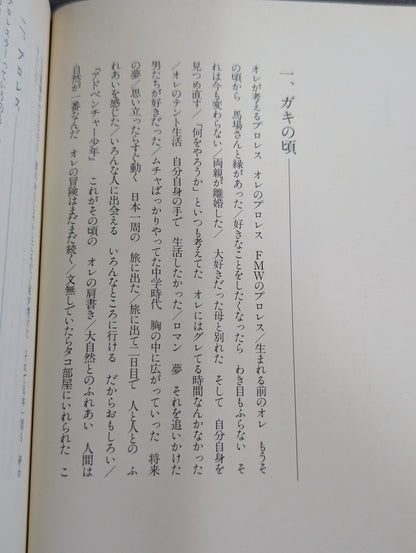 一、ガキの頃
オレが考えるプロレス　オレのプロレス　FMWのプロレス／生まれる前のオレ　もうそ
の頃から　馬場さんと縁があった／好きなことをしたくなったら　わき目もふらない　そ
れは今も変わらない／両親が離婚した／　大好きだった母と別れた　そして　自分自身を
見つめ直す／「何をやろうか」といつも考えてた　オレにはグレてる時間なんかなかった
／オレのテント生活　自分自身の手で　生活したかった／ロマン　夢　それを追いかけた
男たちが好きだった／ムチャばっかりやってた中学時代　胸の中に広がっていった　将来
の夢／思い立ったらすぐ動く　日本一周の　旅に出た／旅に出て二日目で　人と人との　ふ
れあいを感じた／いろんな人に出会える　いろんなところに行ける　だからおもしろい／
『アドベンチャー少年』　これがその頃の　オレの肩書き／大自然とのふれあい　人間は
自然が一番なんだ　オレの冒険はまだまだ続く／文無しでいたらタコ部屋にいれられた　こ
プロレス